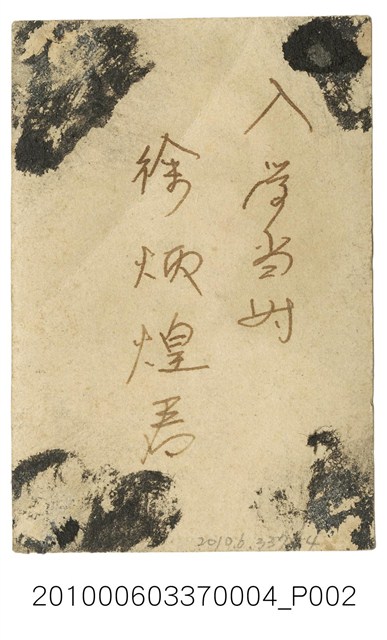 入学当时
徐炳煌君
2010.6.337-4
201000603370004_P002